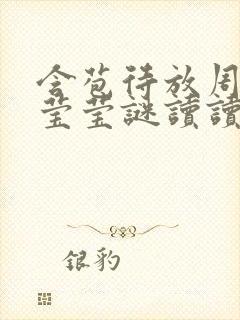 含苞待放周
莹莹謎讀讀
银豹